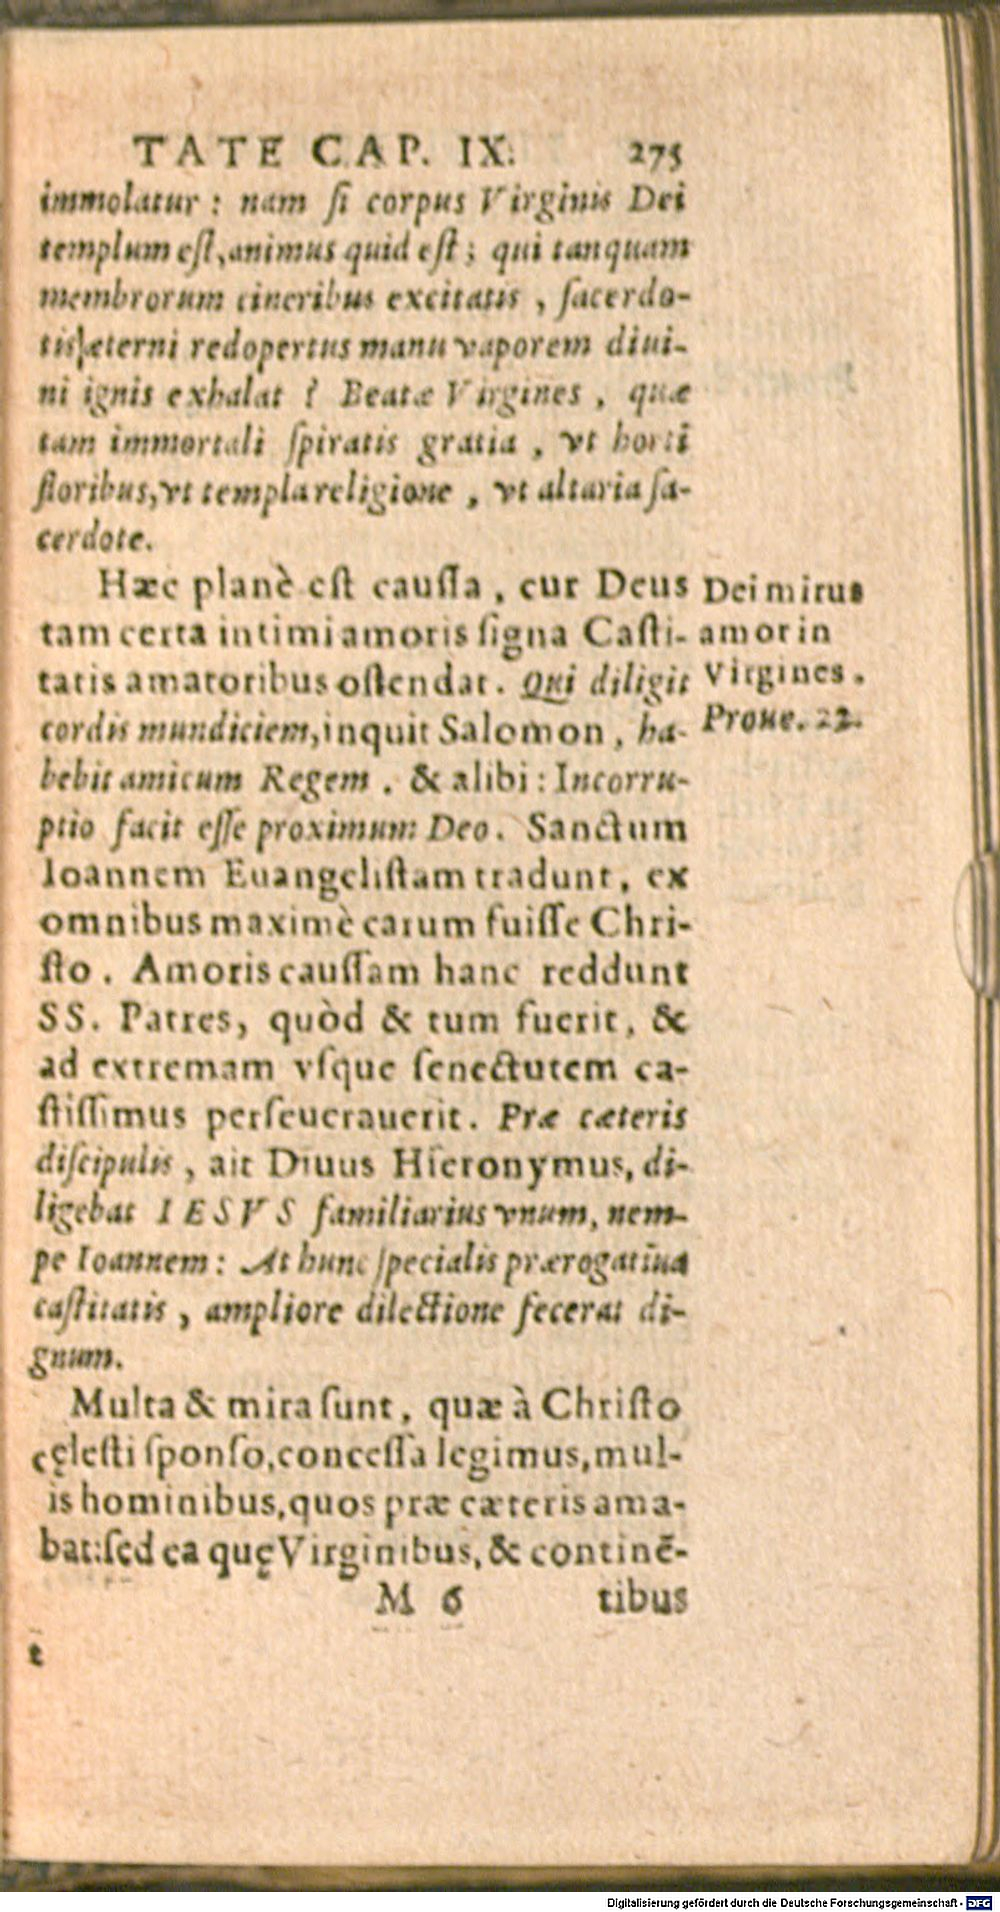 TATE CAP. IX. 275
immolatur : nam ſi corpus Virginis Dei
templum eſt, animus quid eſt; qui tanquam
membrorum cineribus excitatis, ſacerdo-
tis æterni redopertus manu vaporem diui-
ni ignis exhalat ? Beatæ Virgines, quæ
tam immortali ſpiratis gratia, vt horti
floribus, vt templa religione, vt altaria ſa-
cerdote.
Hæc planè eſt cauſſa, cur Deus
tam certa intimi amoris ſigna Caſti-
tatis amatoribus oſtendat. Qui diligit
cordis mundiciem, inquit Salomon, ha-
bebit amicum Regem. & alibi: Incorru-
ptio facit eſſe proximum Deo. Sanctum
Ioannem Euangeliſtam tradunt, ex
omnibus maximè carum fuiſſe Chri-
ſto. Amoris cauſſam hanc reddunt
SS. Patres, quòd & tum fuerit, &
ad extremam vſque ſenectutem ca-
ſtiſſimus perſeuerauerit. Præ cæteris
diſcipulis, ait Diuus Hieronymus, di-
ligebat IESVS familiarius vnum, nem-
pe Ioannem: At hunc ſpecialis prærogatiua
caſtitatis, ampliore dilectione fecerat di-
gnum.
Multa & mira ſunt, quæ à Chriſto
cęleſti ſponſo, conceſſa legimus, mul-
is hominibus, quos præ cæteris ama-
bat: ſed ea quę Virginibus, & continē-
M 6 tibus
t
Dei mirus
amor in
Virgines.
Proue. 22.
Digitalisierung gefördert durch die Deutsche Forschungsgemeinschaft - DFG